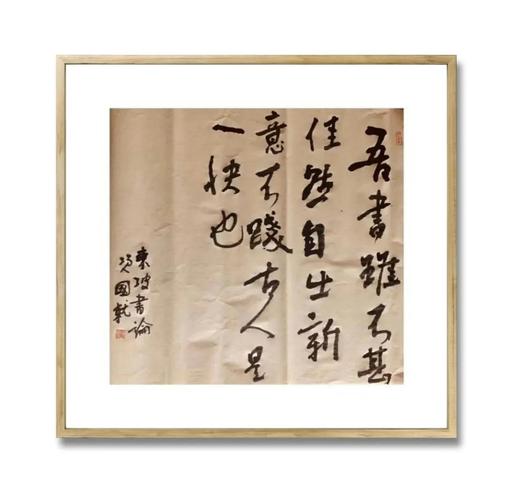 吾書雖不甚
佳然自出新
意不踐古人是
一快也
東坡書論
國